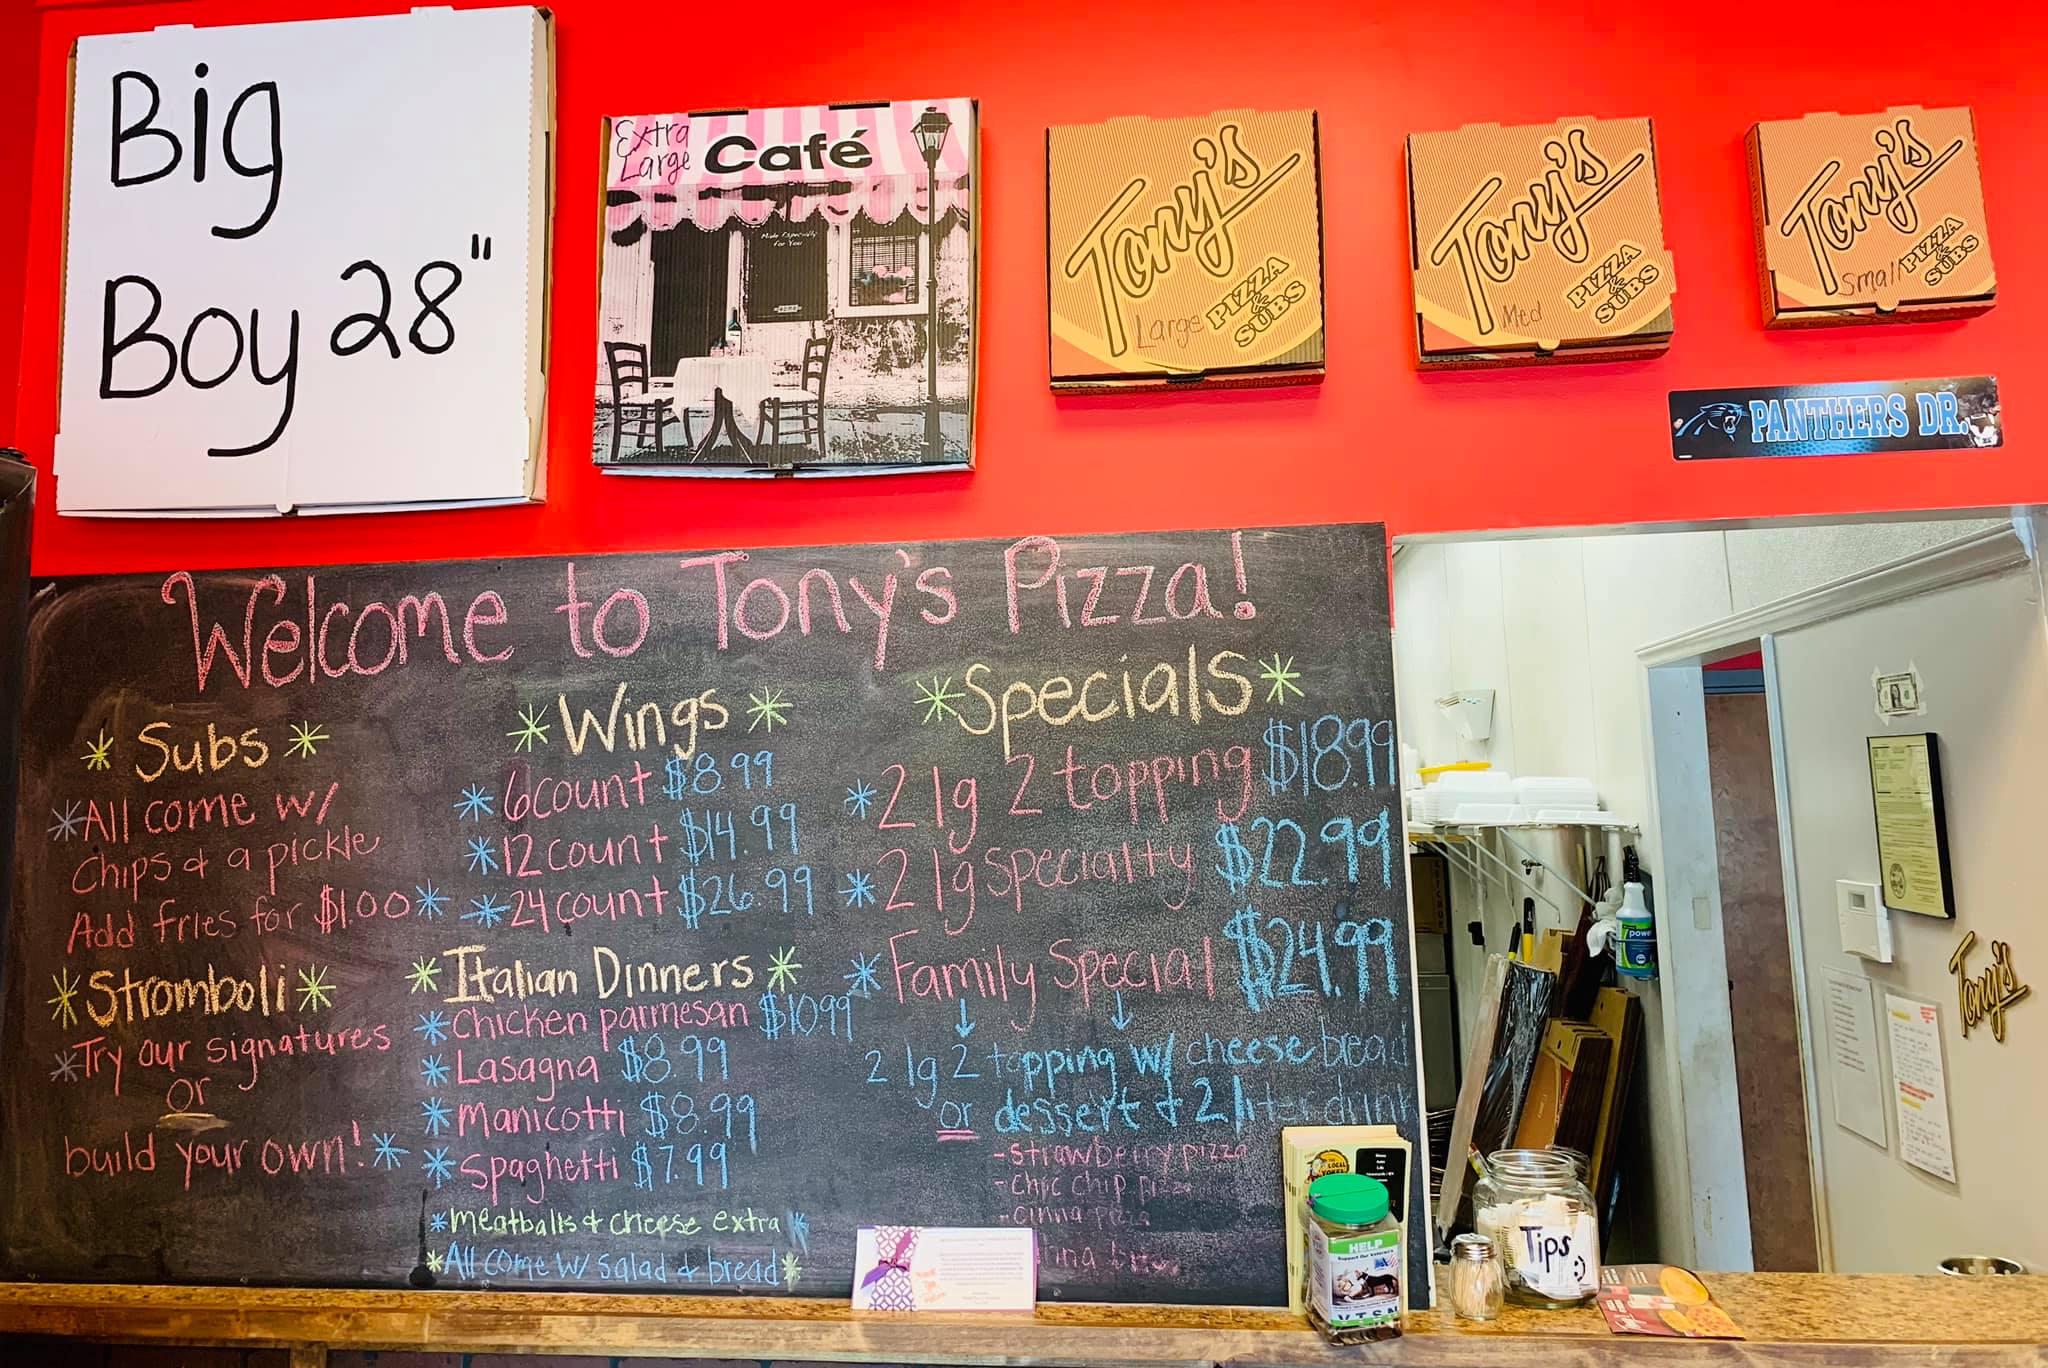 Big
Boy 28"
Extra
Large
Café
Made Especially
for You
Tony's
PIZZA
&
SUBS
Large
Tony's
PIZZA
&
SUBS
Med
Tony's
PIZZA
&
SUBS
Small
PANTHERS DR.
Welcome to Tony's Pizza!
Subs
All come w/
Chips & a pickle
Add fries for $1.00
Stromboli
Try our signatures
or
build your own!
Wings
6 count $8.99
12 count $14.99
24 count $26.99
Italian Dinners
Chicken parmesan $10.99
Lasagna $8.99
Manicotti $8.99
Spaghetti $7.99
Meatballs & cheese extra
All come w/ salad & bread
Specials
2 lg 2 topping $18.99
2 lg specialty $22.99
Family Special $24.99
2 lg 2 topping w/ cheese bread
or dessert & 2 liter drink
- strawberry pizza
- choc chip pizza
- cinna pizza
THE LOCAL
HELP
Support Our Veterans
V.T.S.N
Tips :)
power
Tony's